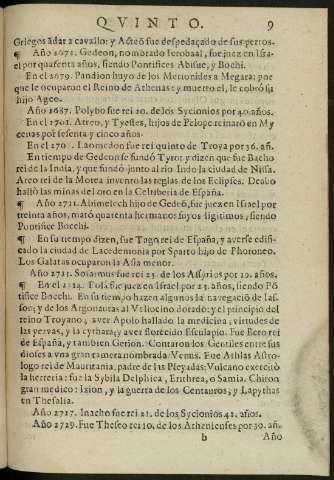 QVINTO. 9
Griegos ãdar a cavallo: y Acteõ fue despedaçado de sus perros.
¶ Año 2671. Gedeon, nombrado Ierobaal, fue juez en Isra-
el por quarenta años, siendo Pontifices Abisue, y Bochi.
En el 2679. Pandion huyo de los Metionides a Megara: por
que le ocuparon el Reino de Athenas: y muerto el, le cobró su
hijo Ageo.
Año 2687. Polybo fue rei 20. de los Sycionios por 40. años.
En el 2701. Atreo, y Tyestes, hijos de Pelope reinarõ en My
cenas por sesenta y cinco años.
En el 270 . Laomedon fue rei quinto de Troya por 36. añ.
En tiempo de Gedeon se fundó Tyro: y dizen que fue Bacho
rei de la India, y que fundó junto al rio Indo la ciudad de Nissa.
Atreo rei de la Morea inventò las reglas de los Eclipses.
hallò las minas del oro en la Celtiberia de España.
¶ Año 2711. Abimelech hijo de Gedeõ, fue juez en Israel por
treinta años, matò quarenta hermanos suyos ligitimos, siendo
Pontifice Bocchi.
¶ En su tiempo dizen, fue Tago rei de España, y averse edifi-
cado la ciudad de Lacedemonia por Sparto hijo de Phoroneo.
Los Galatas ocuparon la Asia menor.
Año 2711. Sosarmus fue rei 25. de los Assyrios por 20. años.
¶ En el 2714. Tola fue juez en Israel por 23. años, siendo Põ
tifice Bocchi. En su tiempo hazen algunos la navegaciõ de Ias-
son; y de los Argonautas al Vellocino dorado: y el principio del
reino Troyano, aver Apolo hallado la medicina, virtudes de
las yervas, y la cythara; y aver florecido Esculapio. Fue Bero rei
de España, y tambien Gerion. Contaron los Gentiles entre sus
dioses a vna gran ramera nombrada Venus. Fue Athlas Astro-
logo rei de Mauritania, padre de las Pleyadas: Vulcano exercitò
la herreria: fue la Sybila Delphica, Erithrea, o Samia. Chiron
gran medico: Ixion, y la guerra de los Centauros, y Lapythas
en Thesalia.
Año 2717. Inacho fue rei 21. de los Sycionios 42. años.
Año 2729. Fue Theseo rei 10. de los Athenienses por 30. añ.
b Año